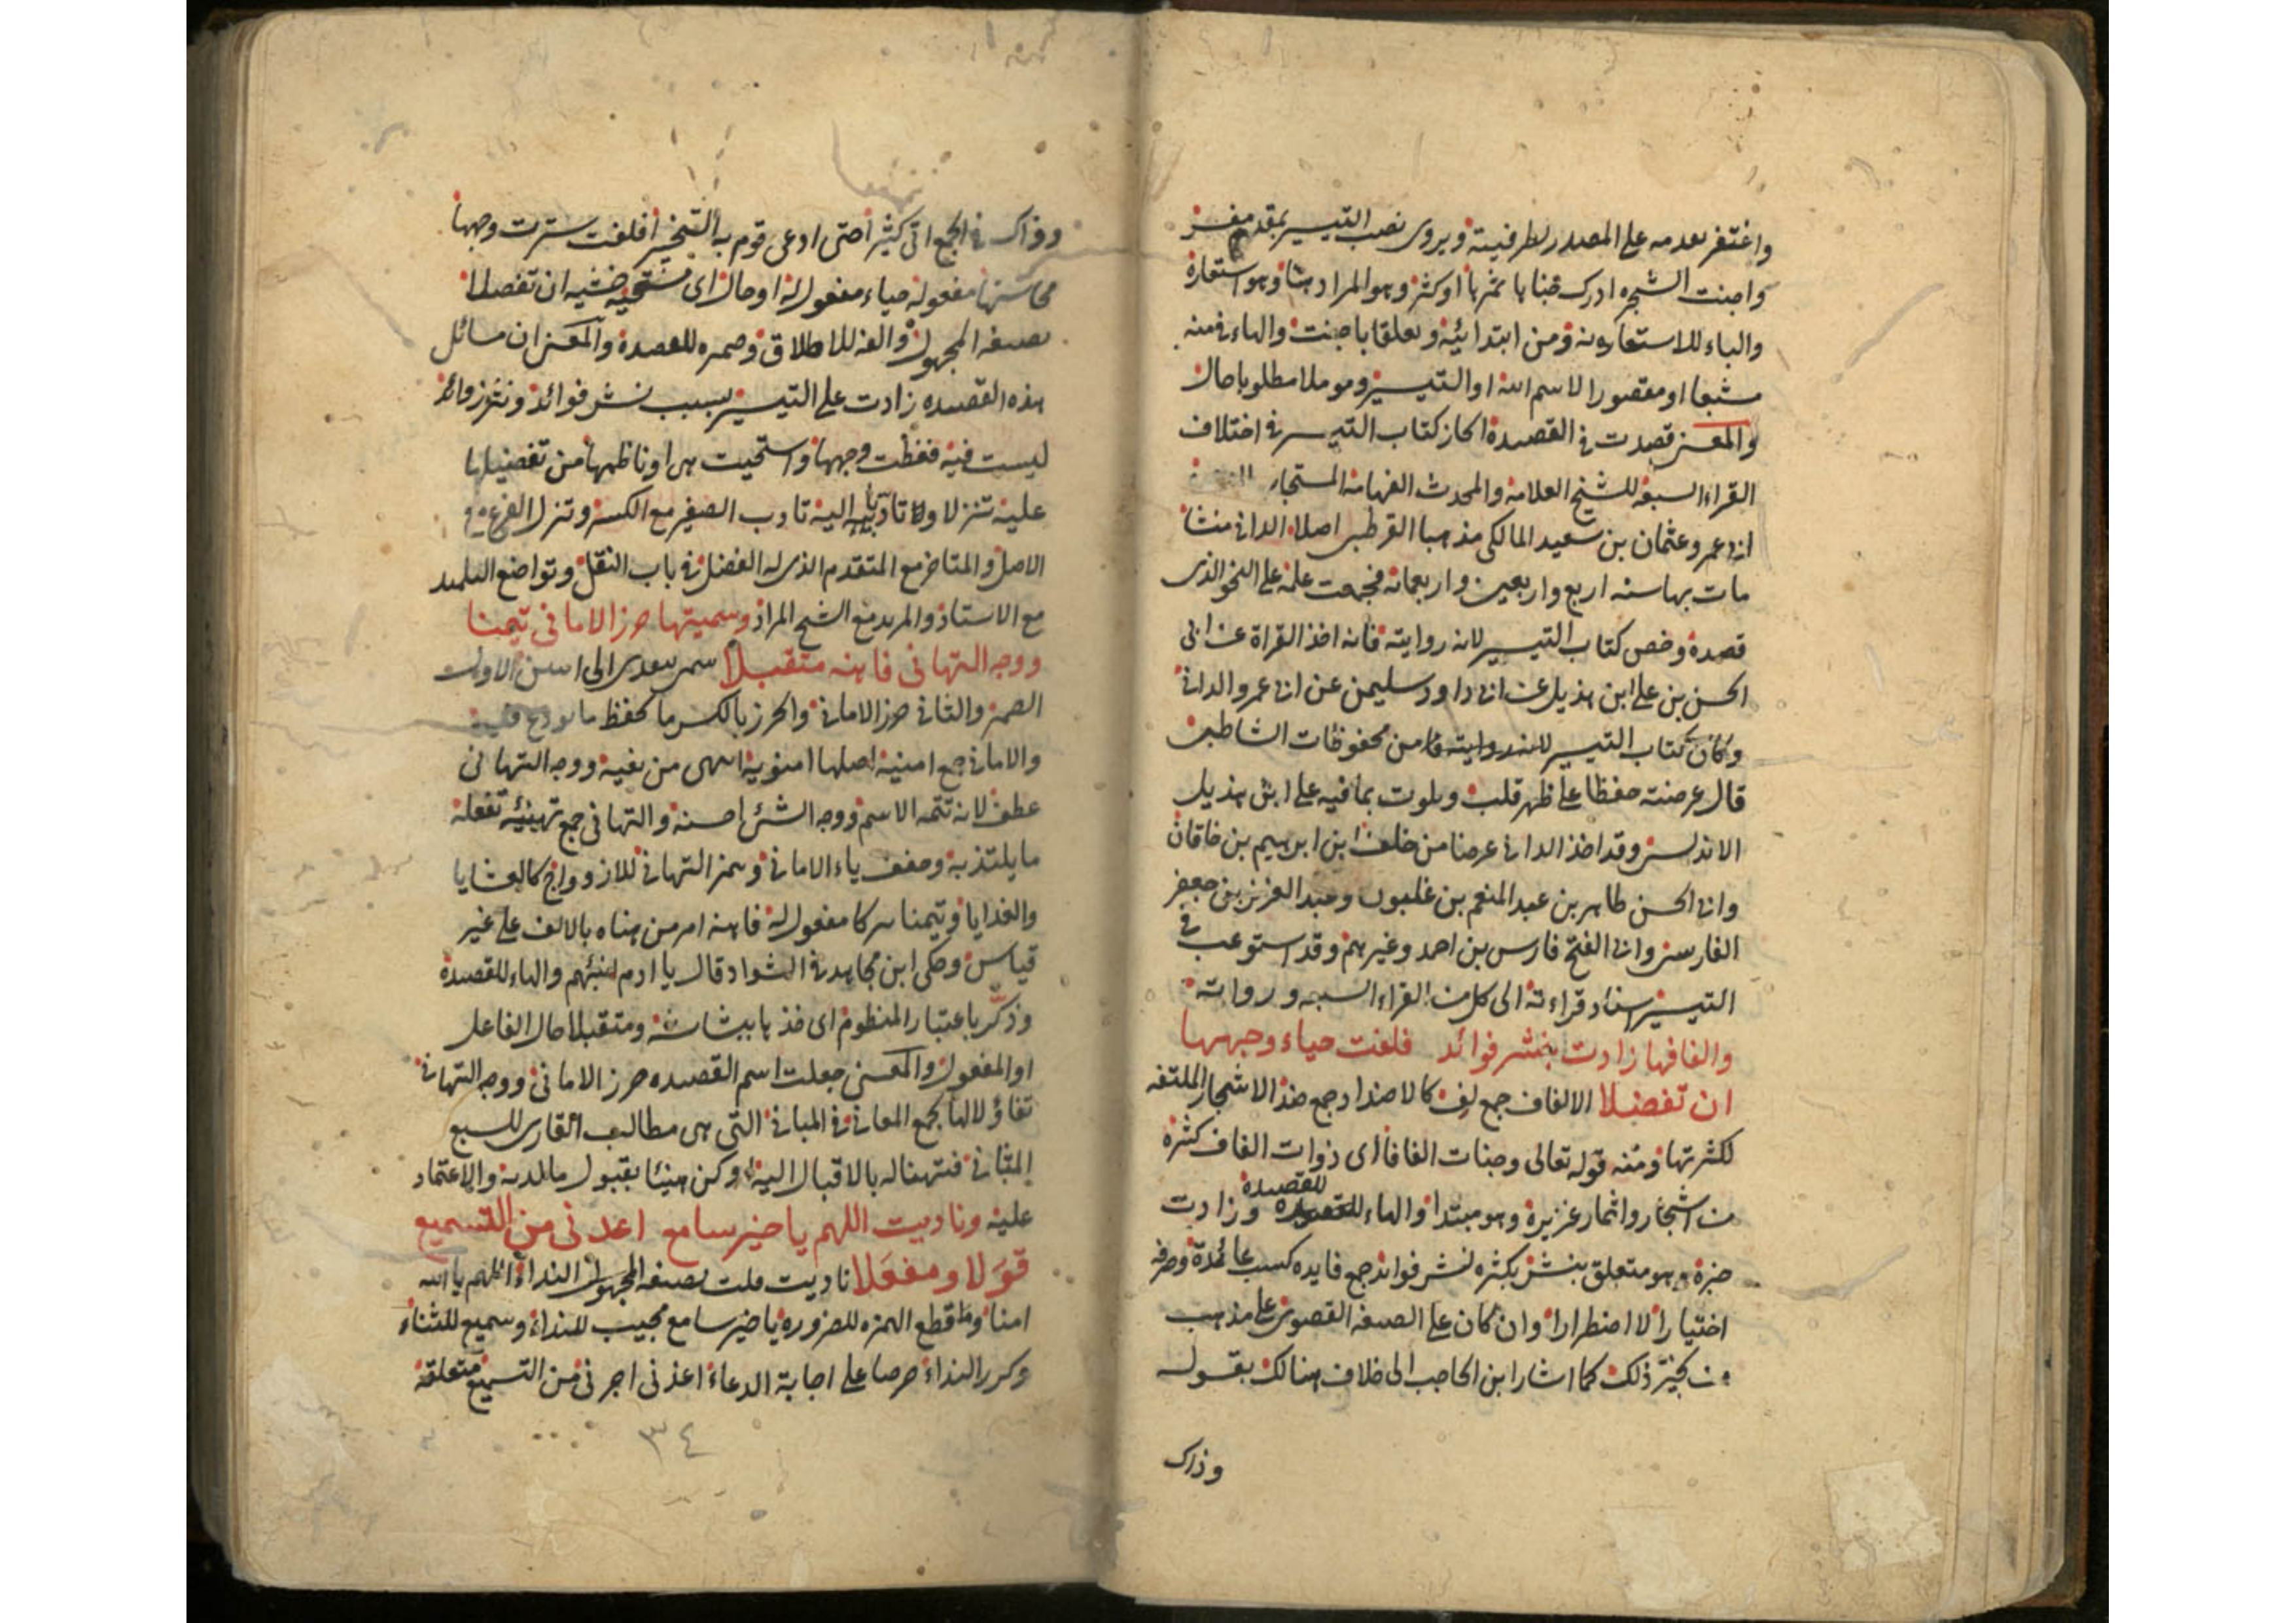 واغتفر تقدمه على المصدر لظرفيته ويروى نصب التيسير بمقدر مفسر
واجنت الشجرة ادرك جناها ثمرها او كثر وهو المراد هنا وهو استعارة
والباء للاستعارة ومن ابتدائية وتعلقا باجنت والهاء في منه
مشبعا او مقصورا لاسم الله او التيسير ومؤملا مطلوبا حال
والمعنى قصدت في القصيدة ايجاز كتاب التيسير في اختلاف
القراء السبعة للشيخ العلامة والمحدث الفهامة المستجاب
ابي عمرو عثمان بن سعيد المالكي مذهبا القرطبي اصلا الداني منشا
مات بها سنة اربع واربعين واربعمائة فجمعت عليه على النحو الذي
قصده وخص كتاب التيسير لانه روايته فانه اخذ القراة عن ابي
الحسن بن علي ابن هذيل عن ابي داود سليمن عن ابي عمرو الداني
وكان كتاب التيسير من محفوظات الشاطبي
قال عرضته حفظا على ظهر قلب وتلوت بما فيه على ابن هذيل
الاندلسي وقد اخذ الداني عرضا من خلف ابن ابرهيم بن خاقان
وابي الحسن طاهر بن عبد المنعم بن غلبون وعبد العزيز بن جعفر
الفارسي وابي الفتح فارس بن احمد وغيرهم وقد استوعب في
التيسير اسناد قراءته الى كل من القراء السبعة ورواته
والفافها زادت بنشر فوائد فلفت حياء وجهها
ان تفضلا الالفاف جمع لف كالاضداد جمع ضد الاشجار الملتفة
لكثرتها ومنه قوله تعالى وجنات الفافا اى ذوات الفاف كثرة
من اشجار واثمار غزيرة وهو مبتدا والهاء للقصيدة وزادت
خبره وهو متعلق بنشر بكثرة لنشر فوائد جمع فايدة كسب عائدة وصرفه
اختيارا لا اضطرارا وان كان على الصيغة القصوى على مذهب
من يجيز ذلك كما اشار ابن الحاجب الى خلاف هنالك بقوله
وذاك
وذاك في الجمع اتى كثيرا حتى ادعى قوم به التخييرا فلفت سترت وجهها
محاسنها مفعوله حياء مفعول له او حال اى مستحية خشية ان تفضلا
بصيغة المجهول والفه للاطلاق وضميره للقصيدة والمعنى ان مسائل
هذه القصيدة زادت على التيسير بسبب نشر فوائد ونثر زوائد
ليست فيه فغطت وجهها واستحيت هى او ناظمها من تفضيلها
عليه تنزلا وتأدبا اليه تادب الصغير مع الكبير وتنزل الفرع مع
الاصل والمتاخر مع المتقدم الذى له الفضل في باب النقل وتواضع التلميذ
مع الاستاذ والمريد مع الشيخ المراد وسميتها حرز الاماني تيمنا
ووجه التهاني فاهنه متقبلا سمى يتعدى الى اسمين الاول
الضمير والثاني حرز الاماني والحرز بالكسر ما يحفظ ما يودع فيه
والاماني جمع امنية اصلها امنوية اسمى من بغية ووجه التهاني
عطف لانه تتمة الاسم ووجه الشئ احسنه والتهاني جمع تهنيئة تفعلة
ما يلتذ به وخفف ياء الاماني وهمز التهاني للازدواج كالعشايا
والغدايا وتيمنا تبركا مفعول له فاهنه امر من هناه بالالف على غير
قياس وحكى ابن مجاهد في الشواذ قال يا ادم انبئهم والهاء للقصيدة
وذكر باعتبار المنظوم اى خذها ببشاشة ومتقبلا حال الفاعل
او المفعول والمعنى جعلت اسم القصيدة حرز الاماني ووجه التهاني
تفاؤلا لها بجمع المعاني في المباني التى هى مطالب القارى للسبع
المثاني فتهنأ له بالاقبال اليه وكن هنيئا بقبول ما لديه والاعتماد
عليه وناديت اللهم يا خير سامع اعذني من التسميع
قولا ومفعلا ناديت قلت بصيغة المجهول النداء اللهم يا الله
امنا وقطع الهمزة للضرورة يا خير سامع مجيب للنداء وسميع للثناء
وكرر النداء حرصا على اجابة الدعاء اعذني اجرني من التسميع متعلقه
٣٤